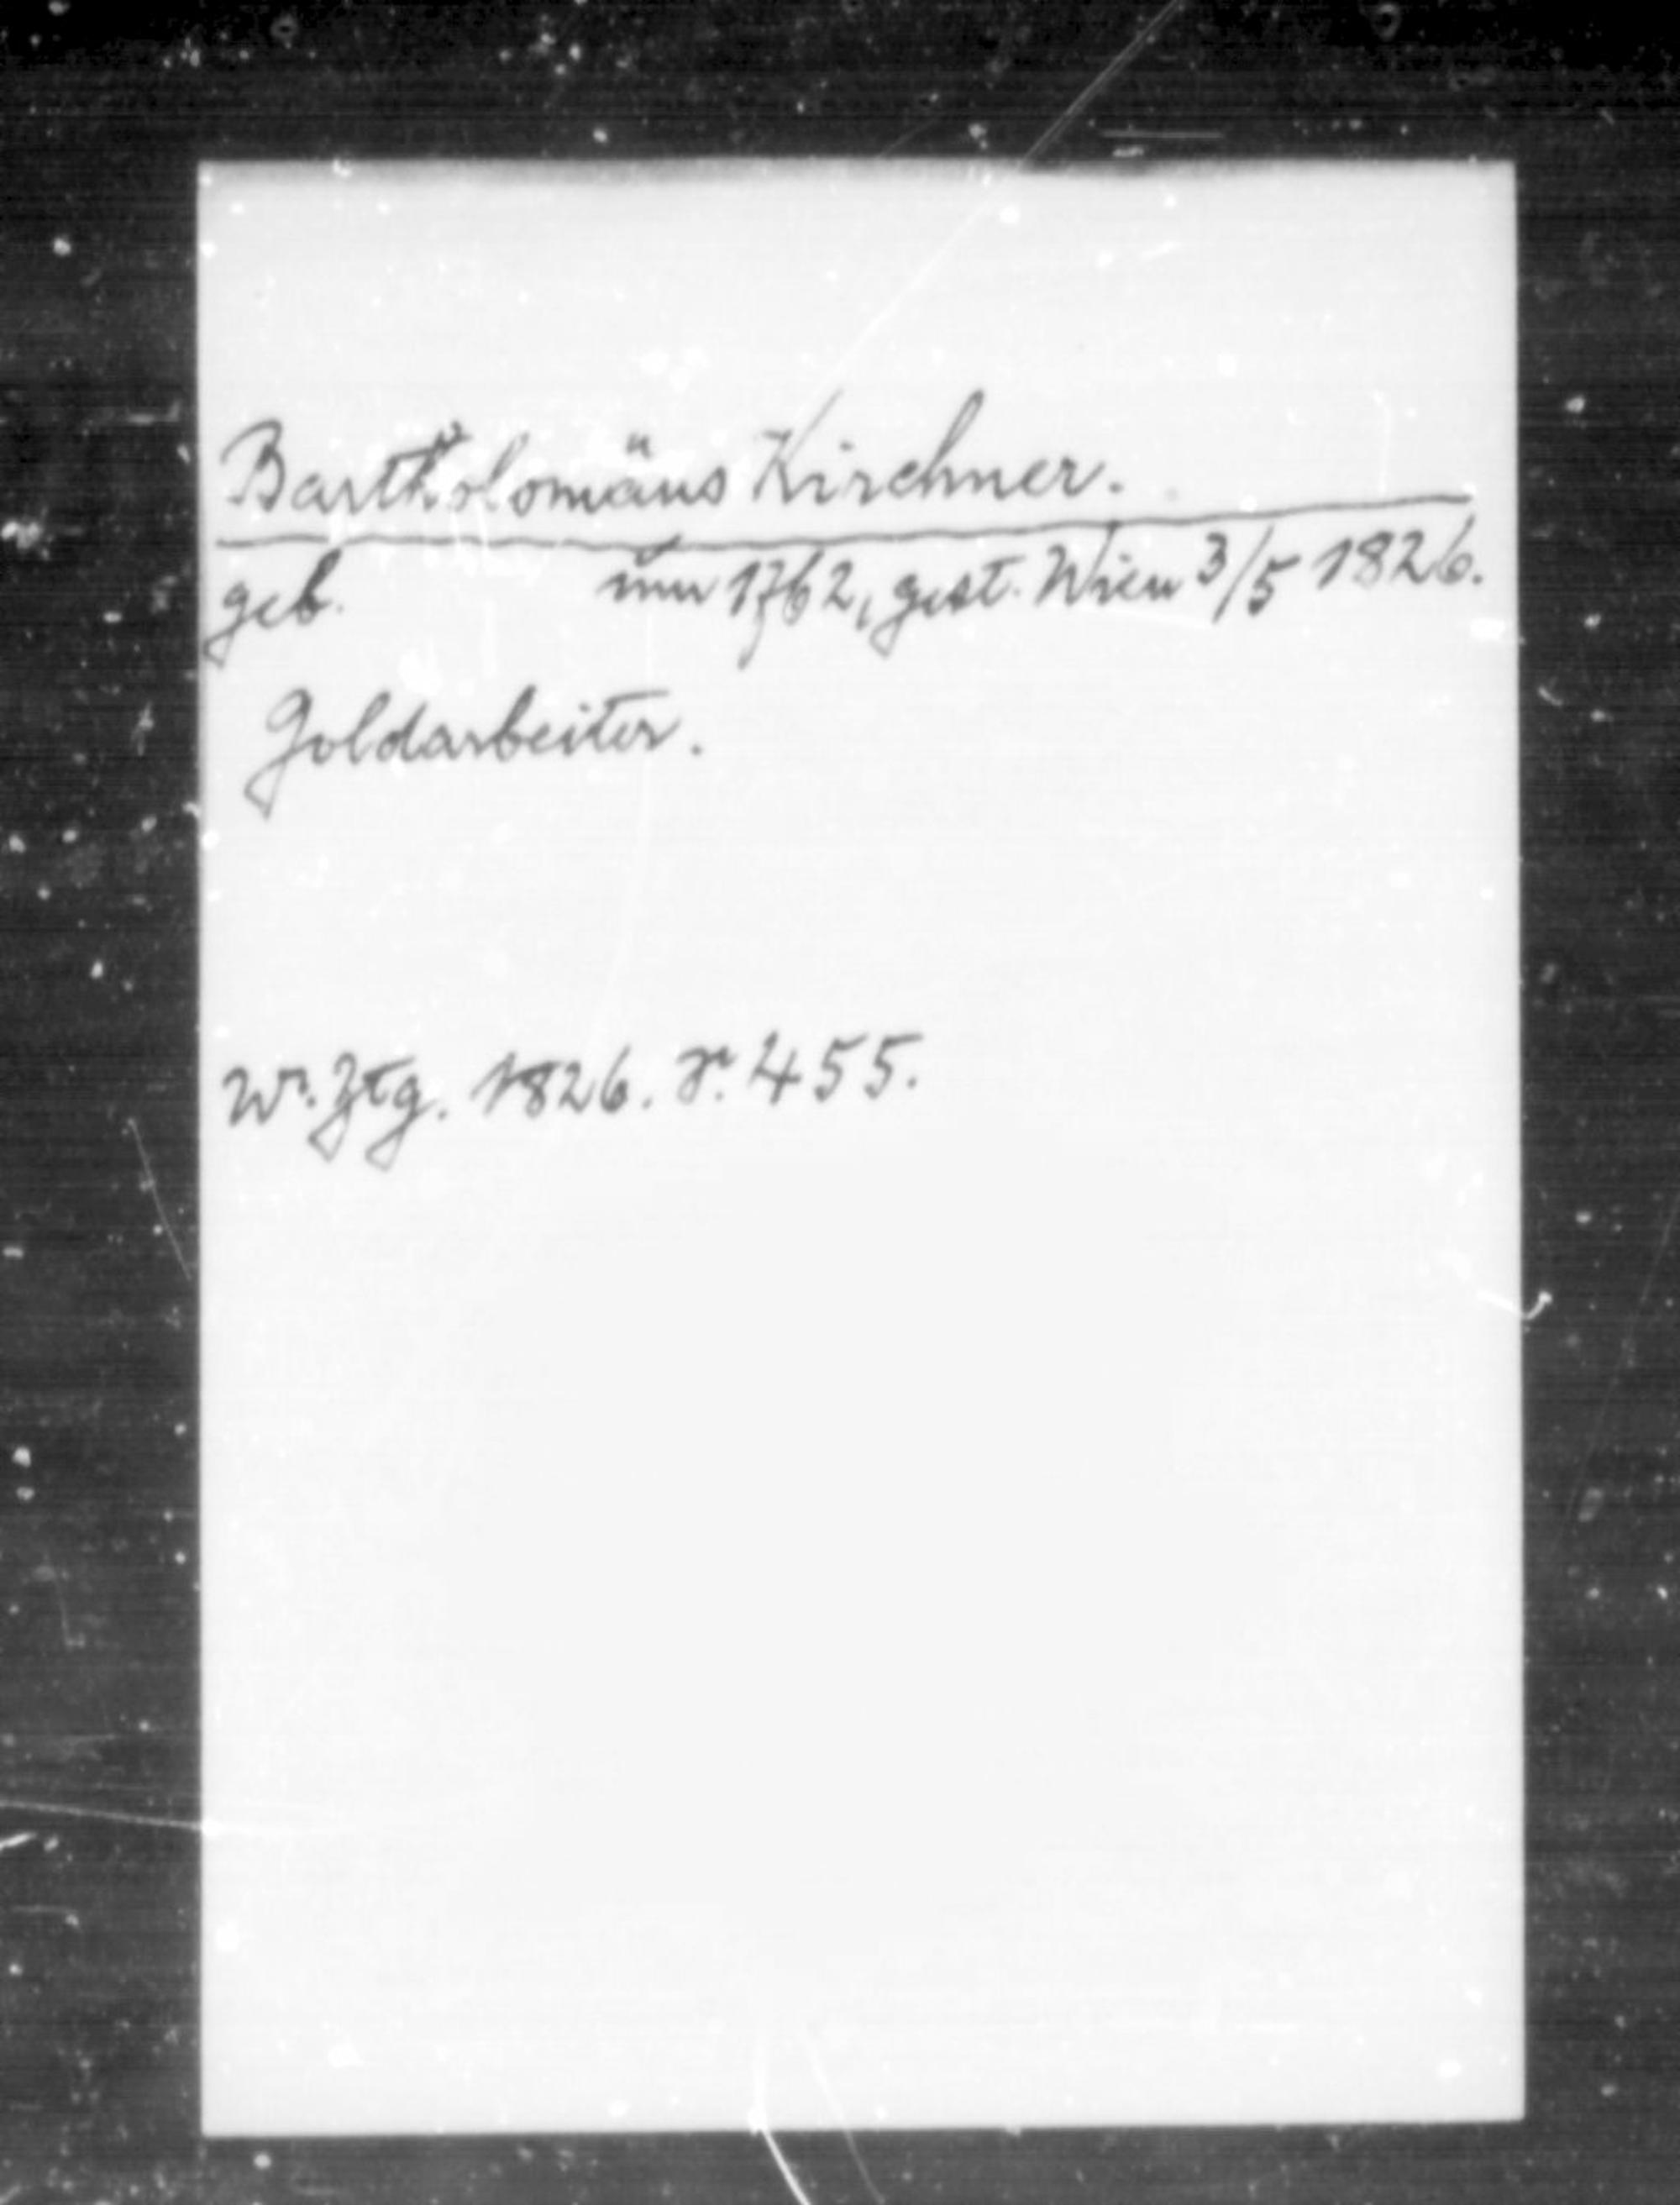 Bartholomäus Kirchner.
geb. um 1762, gest. Wien 3/5 1826.
Goldarbeiter.
Wr. Ztg. 1826. S. 455.